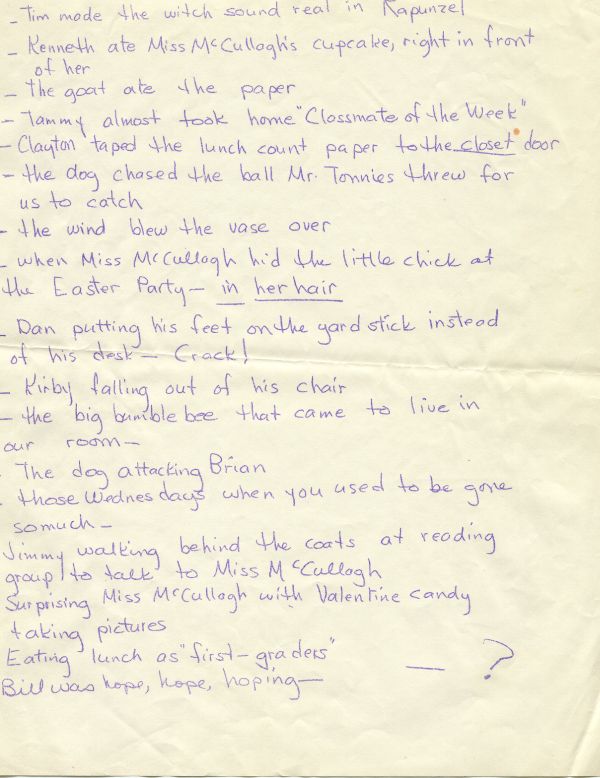 - Tim made the witch sound real in Rapunzel
- Kenneth ate Miss McCullogh's cupcake, right in front
of her
- the goat ate the paper
- Tammy almost took home "Classmate of the Week"
- Clayton taped the lunch count paper to the closet door
- the dog chased the ball Mr. Tonnies threw for
us to catch
- the wind blew the vase over
- when Miss McCullogh hid the little chick at
the Easter Party - in her hair
- Dan putting his feet on the yard stick instead
of his desk - Crack!
- Kirby falling out of his chair
- the big bumble bee that came to live in
our room -
- The dog attacking Brian
- those Wednesdays when you used to be gone
so much -
Jimmy walking behind the coats at reading
group to talk to Miss McCullogh
Surprising Miss McCullogh with Valentine candy
taking pictures
Eating lunch as "first-graders"
Bill was hope, hope, hoping - — ?